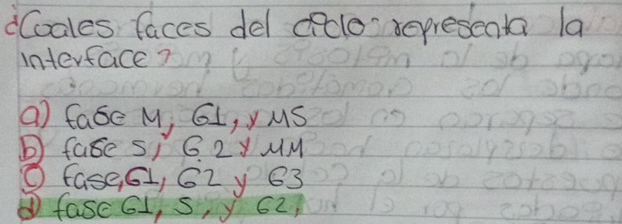 ¿Coales faces del ciclo representa la
interface?
a) fase M, G1, y MS
b) fase S, G2 y MM
c) fase, G1, G2 y G3
d) fase G1, S, y G2,